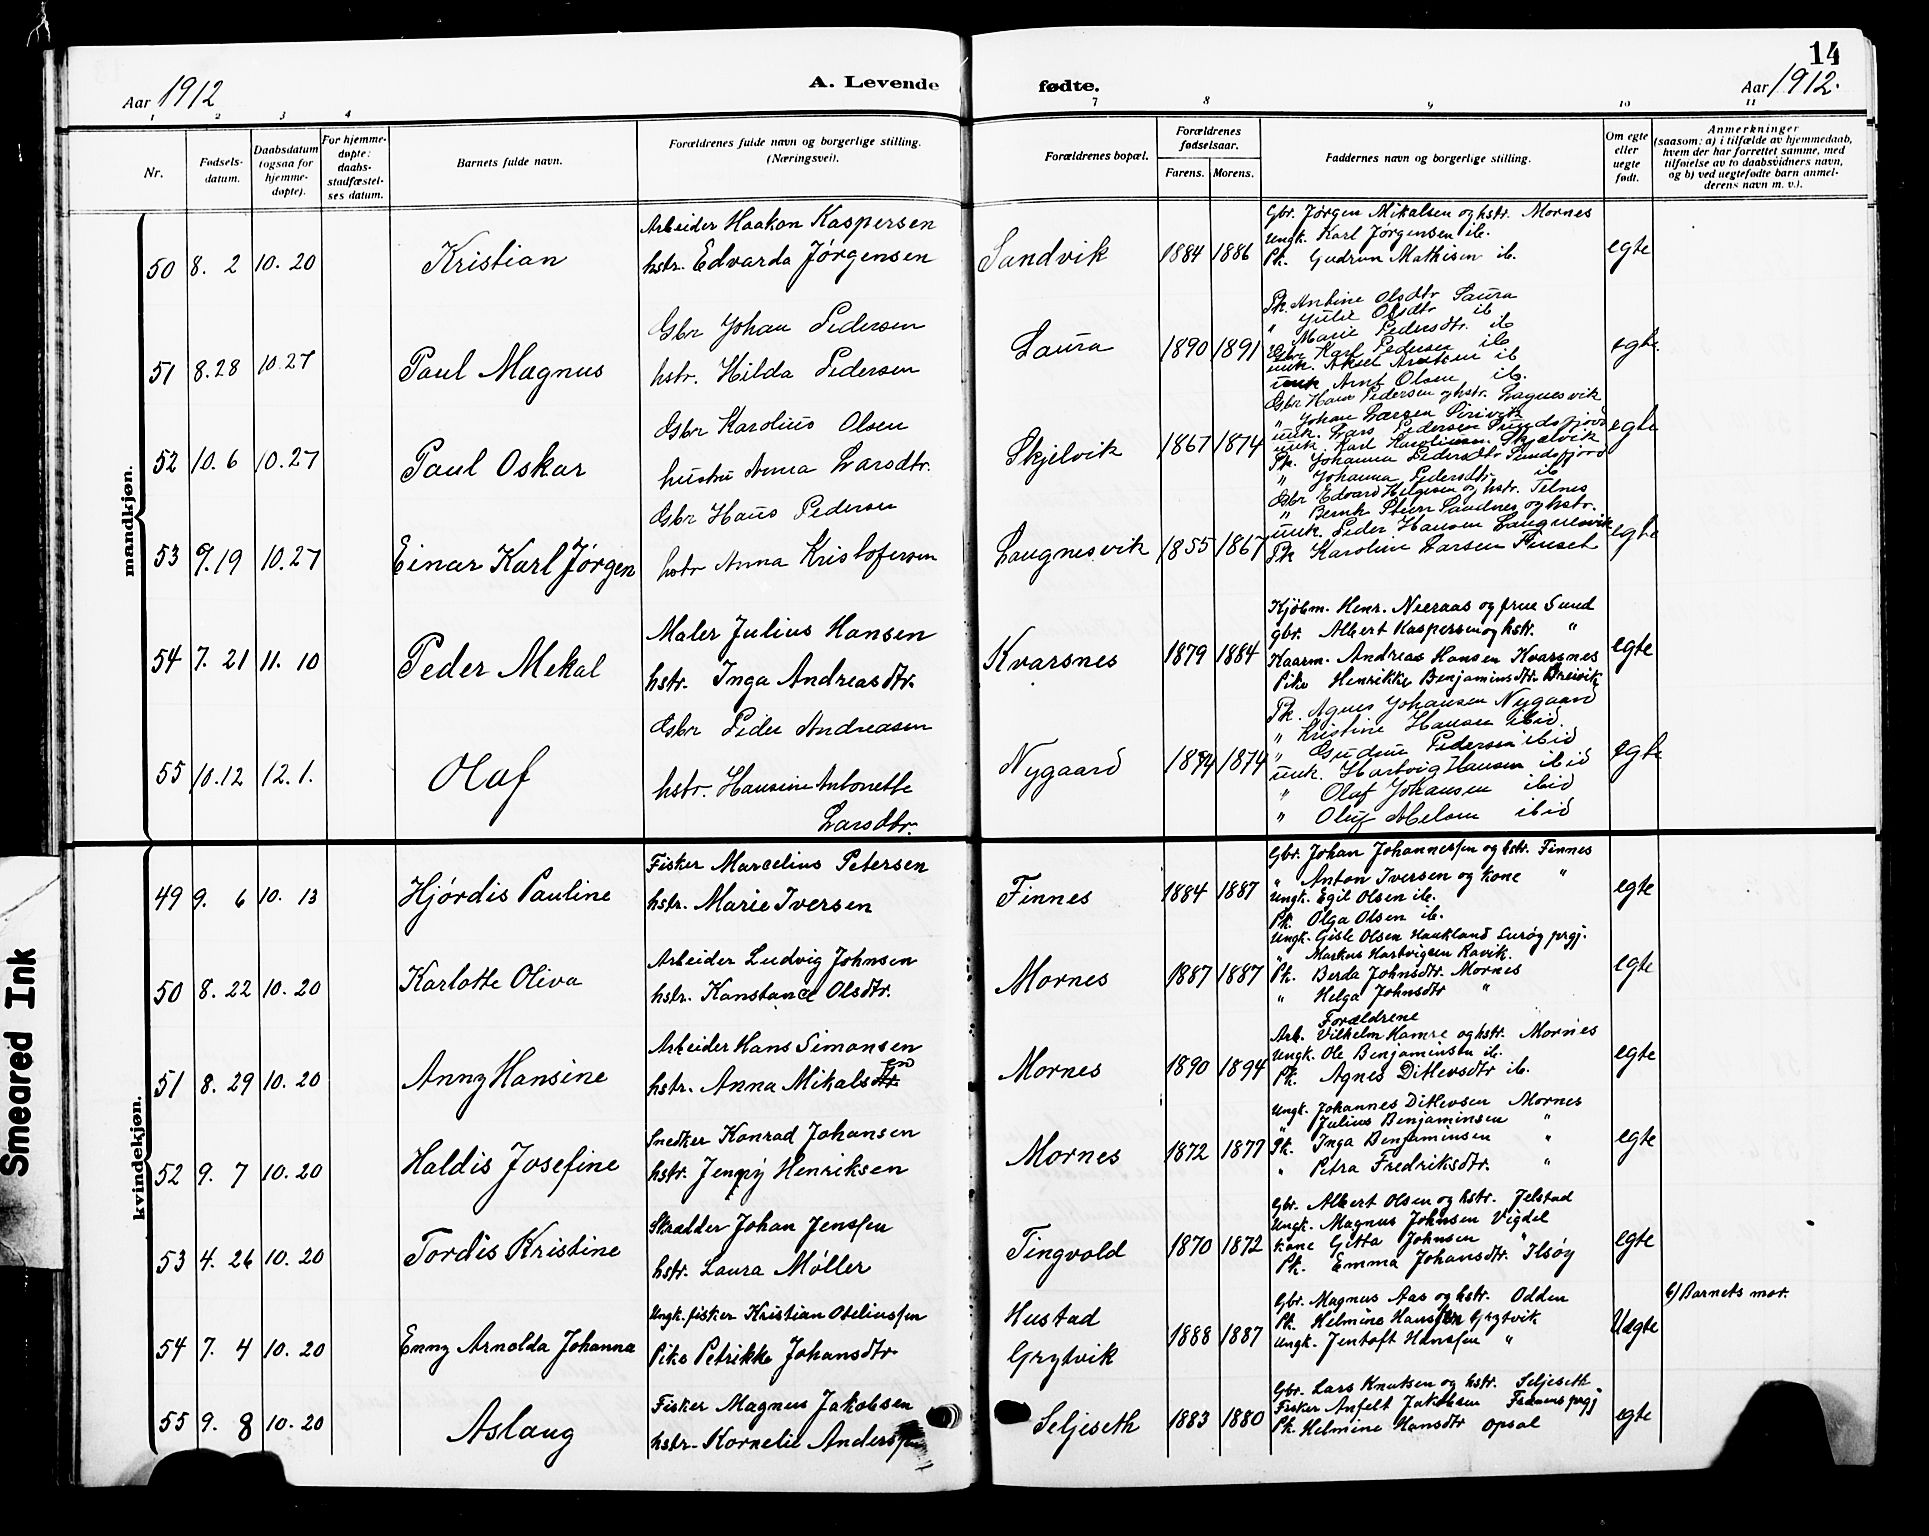 14
Aar 1912
A. Levende
fødte.
Aar 1912.
1 2 3 4 7 8 9 10 11
Nr.
Fødsels-
datum.
Daabsdatum
(ogsaa for
hjemme-
døpte).
For hjemme-
døpte:
daabs-
stadfæstel-
ses datum.
Barnets fulde navn.
Forældrenes fulde navn og borgerlige stilling.
(Næringsvei).
Forældrenes bopæl.
Forældrenes
fødselsaar.
Farens. Morens.
Faddernes navn og borgerlige stilling.
Om egte
eller
uegte
født.
Anmerkninger
(saasom: a) i tilfælde av hjemmedaab,
hvem der har forrettet samme, med
tilføielse av to daabsvidners navn,
og b) ved uegtefødte barn anmel-
derens navn m. v.).
mandkjøn.
50 8. 2 10. 20 Kristian
Arbeider Haakon Kaspersen
hstr. Edvarda Jørgensen
Sandvik 1884 1886
Gbr. Jørgen Mikalsen og hstr. Mornes
Ungk. Karl Jørgensen ib.
Pk. Gudrun Mathisen ib.
egte
51 8. 28 10. 27 Paul Magnus
Gbr Johan Pedersen
hstr. Hilda Pedersen
Laura 1890 1891
Pk. Antine Olsdtr Laura
" Julie Olsdtr ib
" Marie Pedersdtr. ib
Gbr Karl Pedersen ib
unk. Aksel ib
unk Arnt Olsen ib.
egte
52 10. 6 10. 27 Paul Oskar
Gbr Karolius Olsen
hustru Anna Larsdtr.
Skjelvik 1867 1874
Gbr Hans Pedersen og hstr. Laugnesvik
" Johan Larsen
unk. Lars Pedersen Sundsfjord
unk. Karl Karoliussen Skjelvik
Pk. Johanna Pedersdtr Sundsfjord
" Johanna Pedersdtr. ib
egte
53 9. 19 10. 27 Einar Karl Jørgen
Gbr Hans Pedersen
hstr Anna Kristofersen
Laugnesvik 1855 1867
Gbr Edvard Helgesen og hstr. Telnes
" Bernh Sandnes og hstr.
unk. Peder Hansen Laugnesvik
Pk Karoline Larsen Finset
egte
54 7. 21 11. 10 Peder Mekal
Maler Julius Hansen
hstr. Inga Andreasdtr.
Kvarsnes 1879 1884
Kjøbm. Henr. Neeraas og frue Sund
gbr. Albert Kaspersen og hstr. "
Kaarm. Andreas Hansen Kvarsnes
Pike Henrikke Benjaminsdtr. Breivik
egte
55 10. 12 12. 1. Olaf
Gbr Peder Andreasen
hstr. Hansine Antonette
Larsdtr.
Nygaard 1874 1874
Pk. Agnes Johansen Nygaard
" Kristine Hansen ibid
" Gudrun Pedersen ibid
unk. Hartvig Hansen ibid
" Olaf Johansen ibid
" Oluf Melsen ibid
egte
kvindekjøn.
49 9. 6 10. 13 Hjørdis Pauline
Fisker Marcelius Petersen
hstr. Marie Iversen
Finnes 1884 1887
Gbr. Johan Johannessen og hstr. Finnes
" Anton Iversen og kone "
Ungk. Egil Olsen ib.
Pk. Olga Olsen ib.
egte
50 8. 22 10. 20 Karlotte Oliva
Arbeider Ludvig Johnsen
hstr. Konstance Olsdtr.
Mornes 1887 1887
Ungk. Gisle Olsen Haukland Surøy prgj.
" Markus Hartvigsen Ravik.
Pk. Berda Johnsdtr. Mornes
" Helga Johnsdtr "
Forældrene
egte
51 8. 29 10. 20 Anny Hansine
Arbeider Hans Simonsen
hstr. Anna Mikalsdtr
Mornes 1890 1894
Arb. Vilhelm Hamre og hstr. Mornes
Ungk. Ole Benjaminsen ib.
Pk. Agnes Ditlevsdtr ib.
egte
52 9. 7 10. 20 Haldis Josefine
Snedker Konrad Johansen
hstr. Jenny Henriksen
Mornes 1872 1877
Ungk. Johannes Ditlevsen Mornes
" Julius Benjaminsen "
Pk. Inga Benjaminsen "
" Petra Fredriksdtr. "
egte
53 4. 26 10. 20 Tordis Kristine
Skrædder Johan Jenssen
hstr. Laura Møller
Tingvold 1870 1872
Gbr. Albert Olsen og hstr. Jelstad
Ungk. Magnus Johnsen Vigdel
Kone Gitta Johnsen "
Pk. Emma Johansdtr. Ilsøy
egte
54 7. 4 10. 20 Enny Arnolda Johanna
Ungk. fisker Kristian Oteliussen
Pike Petrikke Johansdtr
Hustad
Grytvik
1888 1887
Gbr. Magnus Aas og hstr. Odden
Pk. Helmine Hanssen Grytvik
Ungk. Jentoft Hanssen "
Uegte
b) Barnets mor.
55 9. 8 10. 20 Aslaug
Fisker Magnus Jakobsen
hstr. Kornelie Anderssen
Seljeseth 1883 1880
Gbr. Lars Knutsen og hstr. Seljeseth
Fisker Anfelt Jakobsen Frænens prgj
Pk. Helmine Hansdtr Opsal
egte
Smeared Ink